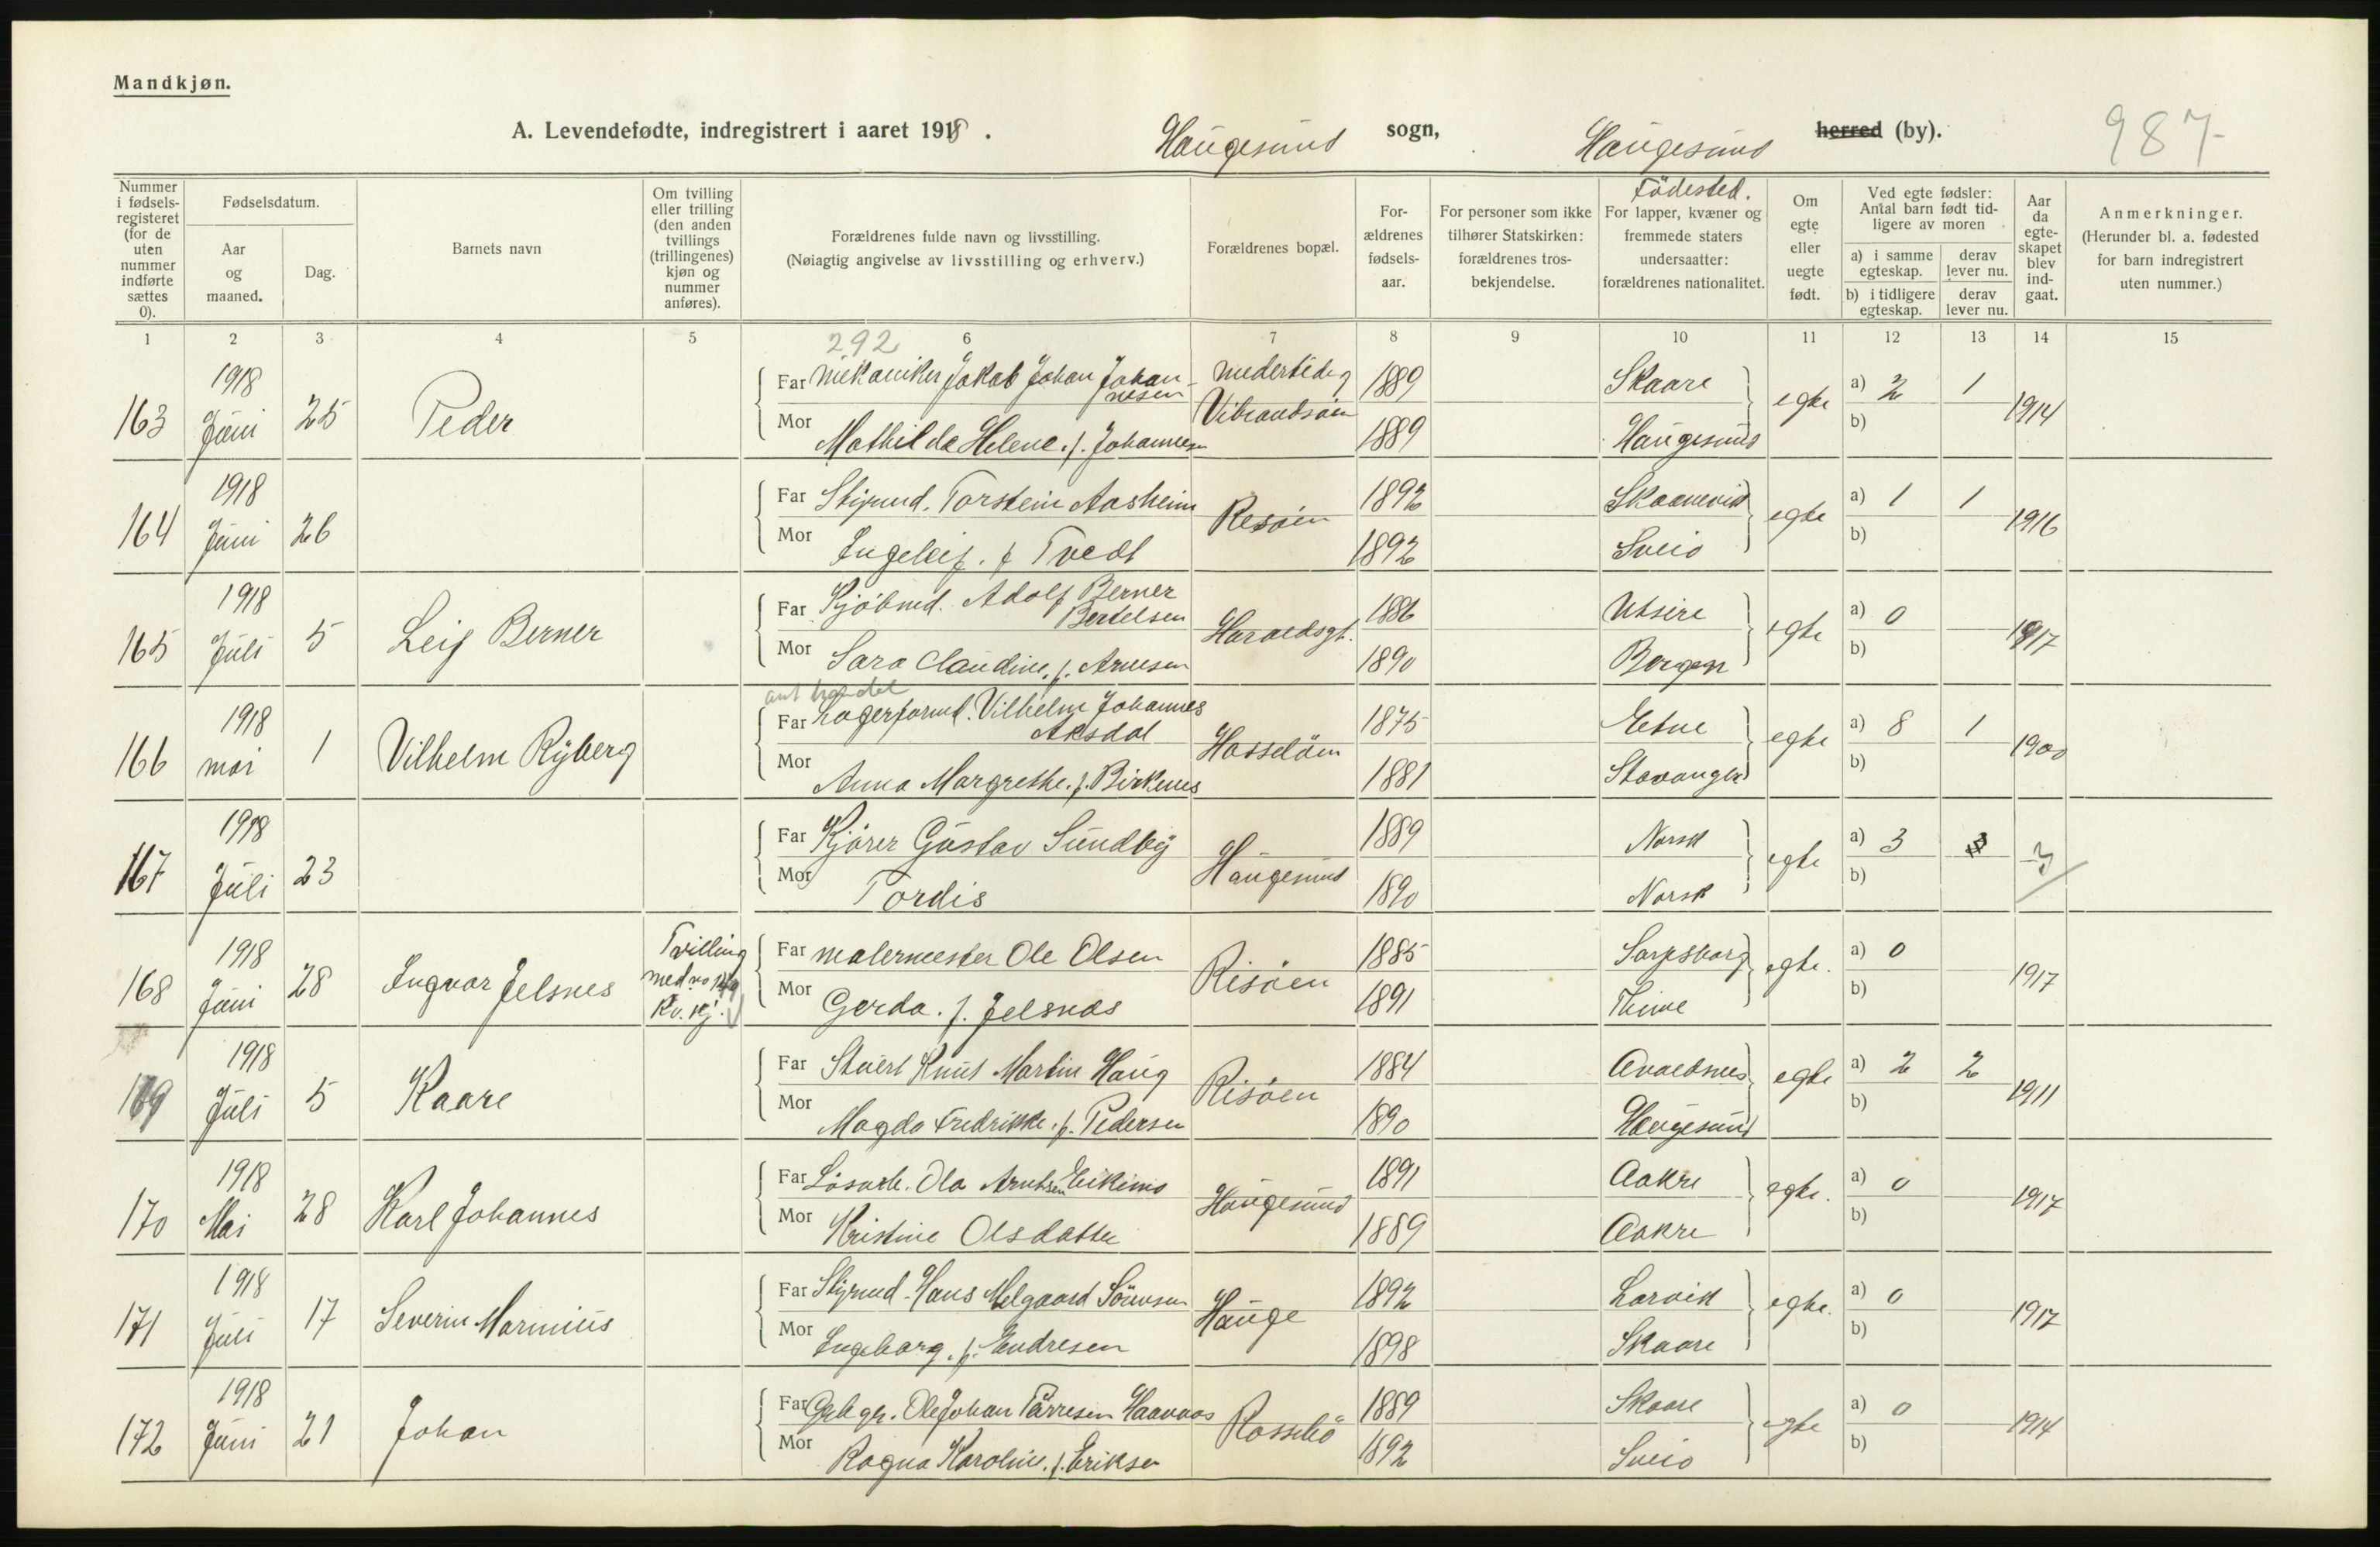 Mandkjøn.
A. Levendefødte, indregistrert i aaret 1918. Haugesund sogn, Haugesund herred (by). 987
Nummer i fødselsregisteret (for de uten nummer indførte sættes 0).
Fødselsdatum.
Aar og maaned.
Dag.
Barnets navn
Om tvilling eller trilling (den anden tvillings (trillingenes) kjøn og nummer anføres).
Forældrenes fulde navn og livsstilling.
(Nøiagtig angivelse av livsstilling og erhverv.)
Forældrenes bopæl.
Forældrenes fødselsaar.
For personer som ikke tilhører Statskirken: forældrenes trosbekjendelse.
Födested.
For lapper, kvæner og fremmede staters undersaatter: forældrenes nationalitet.
Om egte eller uegte født.
Ved egte fødsler: Antal barn født tidligere av moren
a) i samme egteskap. derav lever nu.
b) i tidligere egteskap. derav lever nu.
Aar da egteskapet blev indgaat.
Anmerkninger.
(Herunder bl. a. fødested for barn indregistrert uten nummer.)
1 2 3 4 5 6 7 8 9 10 11 12 13 14 15
292
163 1918 Juni 25 Peder
Far Mekaniker Jakob Johan Johannesen 1889 Skaare egte a) 2 1 1914
Mor Mathilde Helene. f. Johannesen 1889 Haugesund b)
164 1918 Juni 26
Far Styrmd. Torstein Aasheim Risöen 1892 Skaanevik egte a) 1 1 1916
Mor Ingeleif. f Tvedt 1892 Sveio b)
165 1918 Juli 5 Leif Berner
Far Kjöbmd. Adolf Berner Bertelsen Haraldsgt. 1886 Utsire egte a) 0 1917
Mor Sara Claudine. f. Arnesen 1890 Bergen b)
166 1918 mai 1 Vilhelm Ryberg
Far Lagerformd. Vilhelm Johannes Aksdal Hasselöen 1875 Etne egte a) 8 1 1900
Mor Anna Margrethe. f. Birkenes 1881 Stavanger b)
167 1918 Juli 23
Far Kjörer Gustav Sundby Haugesund 1889 Norsk egte a) 3
Mor Tordis 1890 Norsk b)
168 1918 Juni 28 Ingvar Jelsnes Tvilling med no Kv. kj.
Far malermester Ole Olsen Risöen 1885 Sarpsborg egte. a) 0 1917
Mor Gerda. f. Jelsnæs 1891 Thime b)
169 1918 Juli 5 Kaare
Far Stuert Knut Martin Haug Risöen 1884 Avaldsnes egte a) 2 2 1911
Mor Magda Fredrikke. f. Pedersen 1890 Haugesund b)
170 1918 Mai 28 Karl Johannes
Far Lösarb. Ola Arntsen Eikimo Haugesund 1891 Aakre egte. a) 0 1917
Mor Kristine Olsdatter 1889 Aakre b)
171 1918 Juli 17 Severin Marinius
Far Styrmd. Hans Melgaard Sörensen Hauge 1892 Larvik egte. a) 0 1917
Mor Ingeborg. f. Endresen 1898 Skaare b)
172 1918 Juni 21 Johan
Far Ole Johan Törresen Haavaas 1889 Skaare egte a) 0 1914
Mor Ragna Karoline. f. Eriksen 1892 Sveio b)